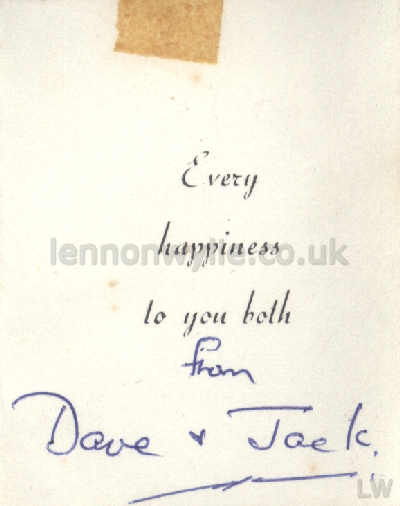 Every
happiness
lennonwylie.co.uk
to you both
from
Dave + Jack.
LW